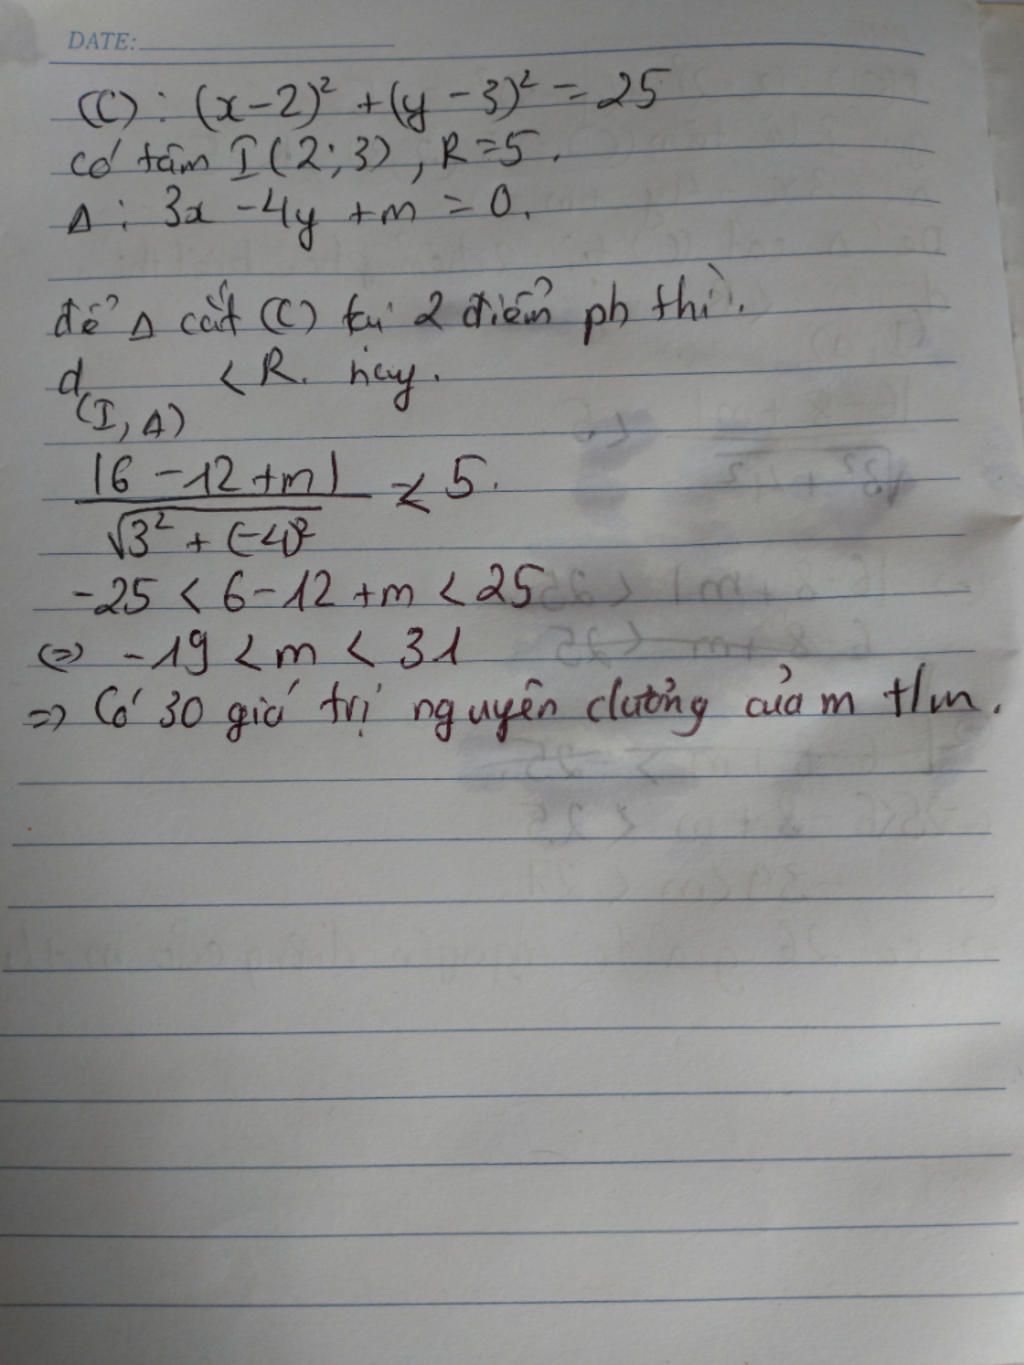 DATE:
(C): (x-2)² + (y-3)² = 25
có tâm I(2;3), R=5.
Δ: 3x - 4y + m = 0.
để Δ cắt (C) tại 2 điểm pb thì.
d(I,Δ) < R. hay.
|6 - 12 + m| / √3² + (-4)² < 5.
-25 < 6 - 12 + m < 25
⇔ -19 < m < 31
=> Có 30 giá trị nguyên dương của m t/m.